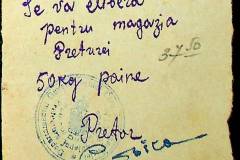 Se va elibera
pentru magazia
Preturei
3750
50 kg paine
Pretor